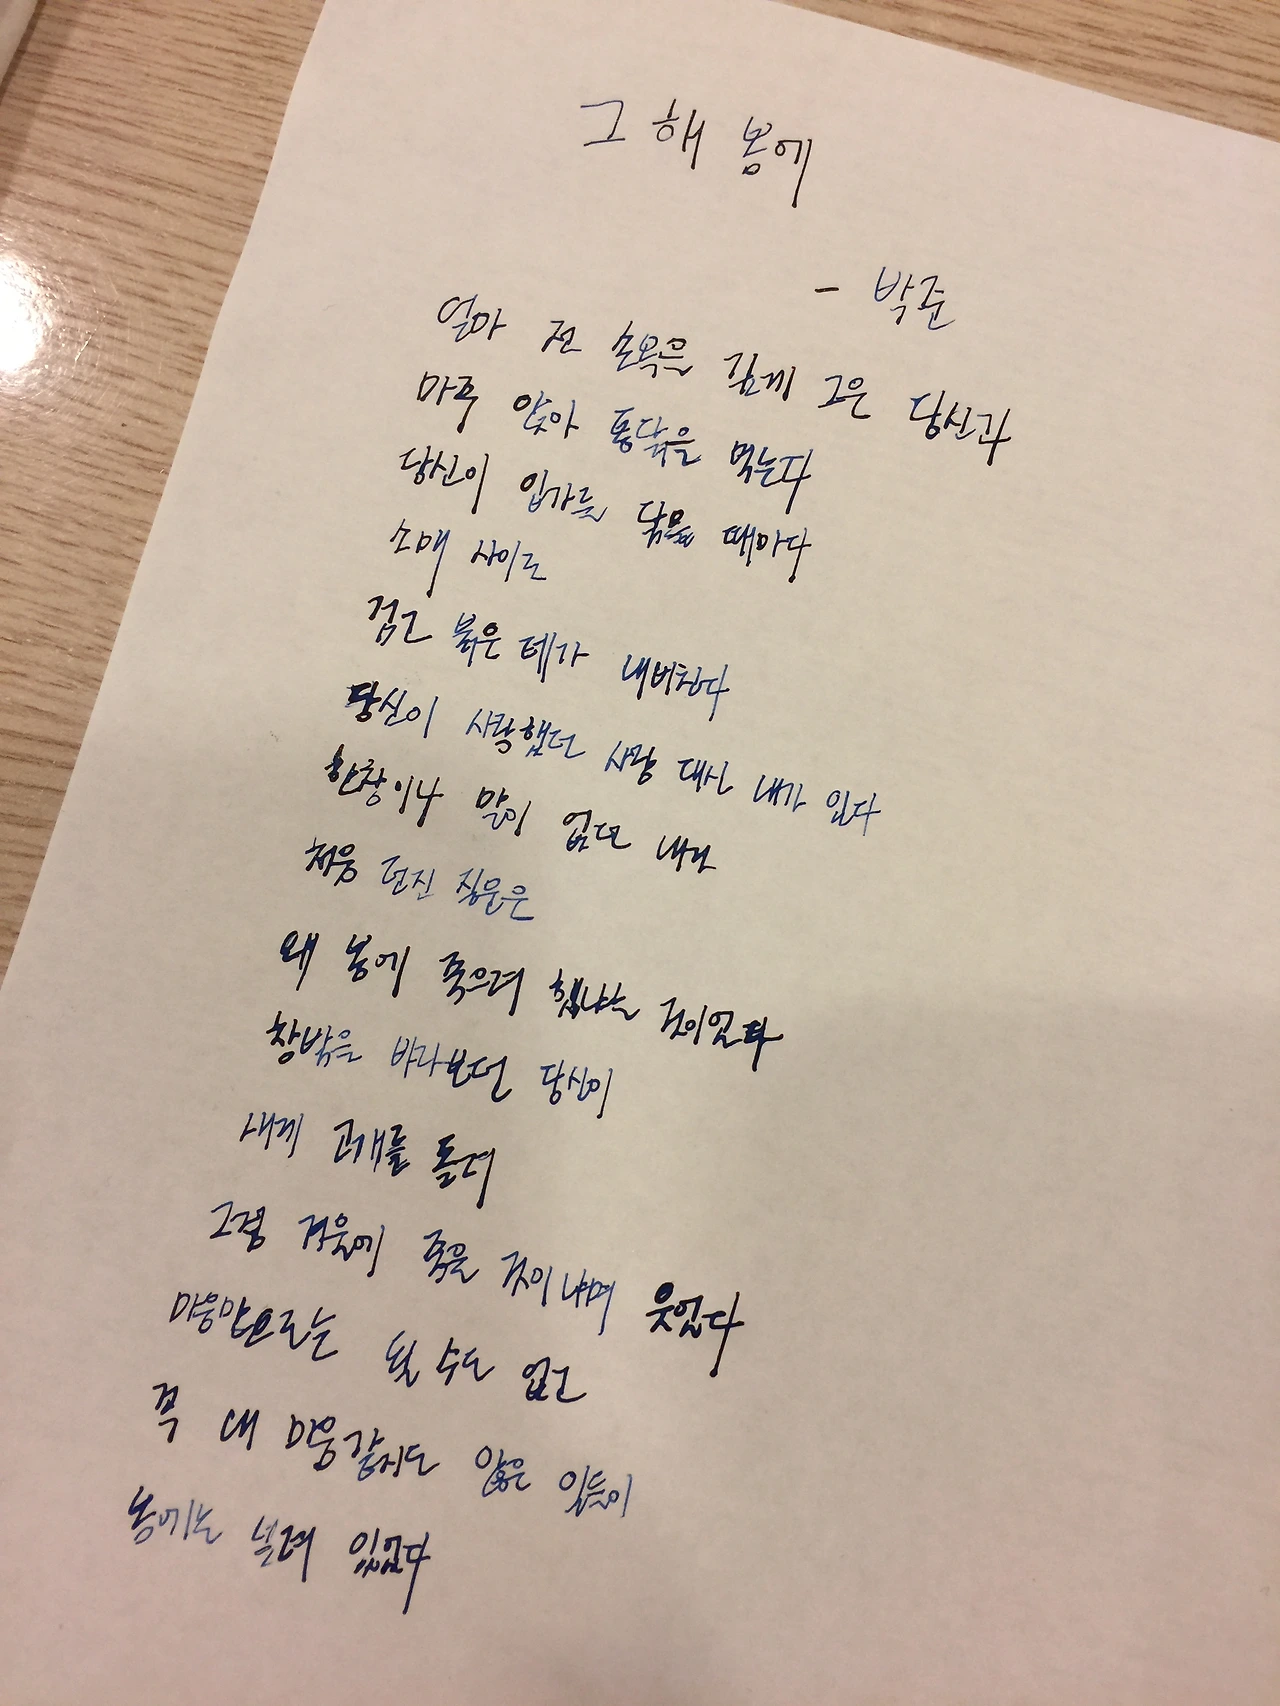 그 해 봄에
- 박준
얼마 전 손목을 깊게 그은 당신과
마주 앉아 통닭을 먹는다
당신이 입가를 닦을 때마다
소매 사이로
검고 붉은 테가 내비친다
당신이 사랑했던 사람 대신 내가 있다
한참이나 말이 없던 내가
처음 던진 질문은
왜 봄에 죽으려 했냐는 것이었다
창밖을 바라보던 당신이
내게 고개를 돌려
그럼 겨울에 죽을 것이냐며 웃었다
마음만으로는 될 수도 없고
꼭 내 마음 같지도 않은 일들이
봄에는 널려 있었다